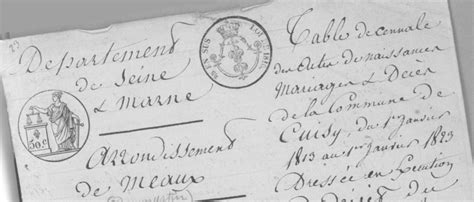 Departement
de Seine
& Marne
Arrondissement
de Meaux
50c
Table decennale
des actes de naissances
Mariages & Décès
de la Commune de
Cuisy, du 1er Janvier
1813 au 1er Janvier 1823
Dressée en Execution